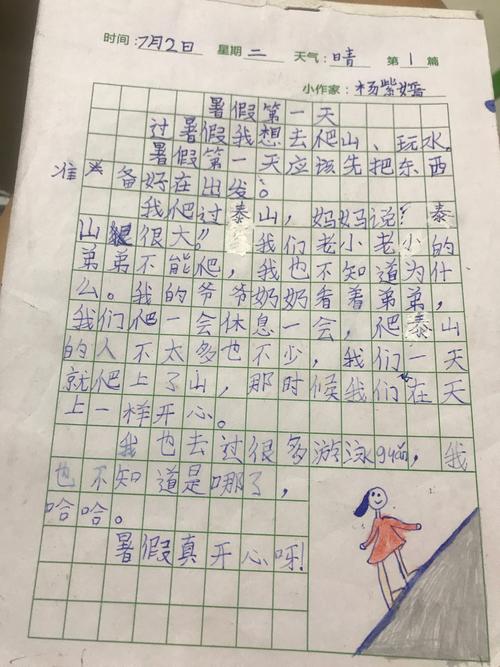 时间：7月2日 星期 二 天气：晴 第 1 篇
小作家：杨紫婷
暑假第一天
过暑假我想去爬山、玩水。
暑假第一天应该先把东西
准备好在出发。
我爬过泰山，妈妈说？泰
山很很大。”我们老小老小的
弟弟不能爬，我也不知道为什
么。我的爷爷奶奶看着弟弟，
我们爬一会休息一会，爬泰山
的人不太多也不少，我们一天
就爬上了山，那时候我们在天
上一样开心。
我也去过很多游泳guǎn，我
也不知道是哪了，
哈哈。
暑假真开心呀!